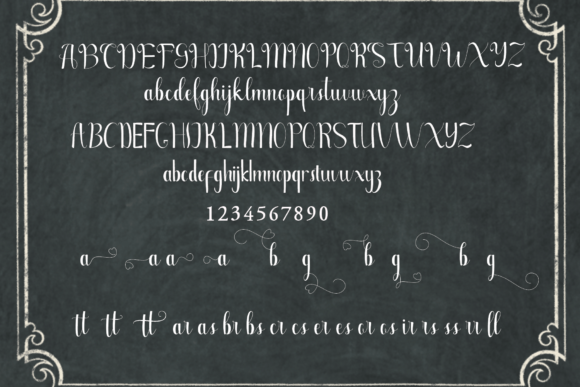 ABCDEFGHIJKLMNOPQRSTUVWXYZ
abcdefghijklmnopqrstuvwxyz
ABCDEFGHIJKLMNOPQRSTUVWXYZ
abcdefghijklmnopqrstuvwxyz
1234567890
a a a a b g b g b g
tt tt tt ar as br bs cr cs er es or os ir rs ss rr ll